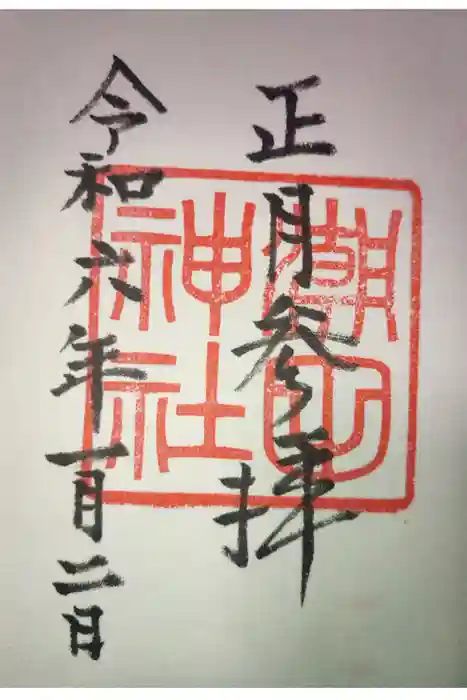 正月参拝
令和六年一月二日
神社